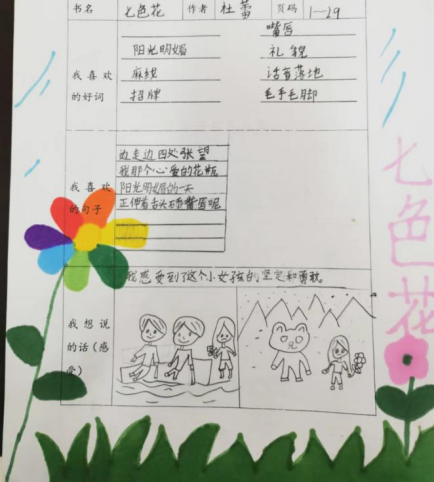 书名 七色花 作者 杜蕾 页码 1—29
嘴唇
阳光明媚 礼貌
我喜欢 麻绳 话音落地
的好词 招牌 毛手毛脚
边走边四处张望
我那个心爱的花瓶
我喜欢 阳光明媚的一天
的句子 正伸着舌头舔嘴唇呢
我感受到了这个小女孩的坚定和勇敢。
我想说
的话(感
受)
七色花